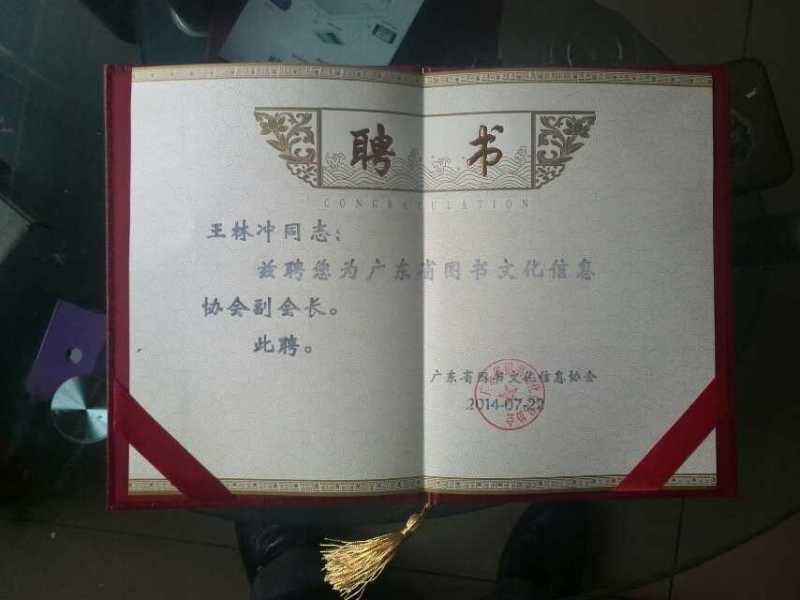 聘 书
CONGRATULATION
王林冲同志：
兹聘您为广东省图书文化信息
协会副会长。
此聘。
广东省图书文化信息协会
2014-07-22